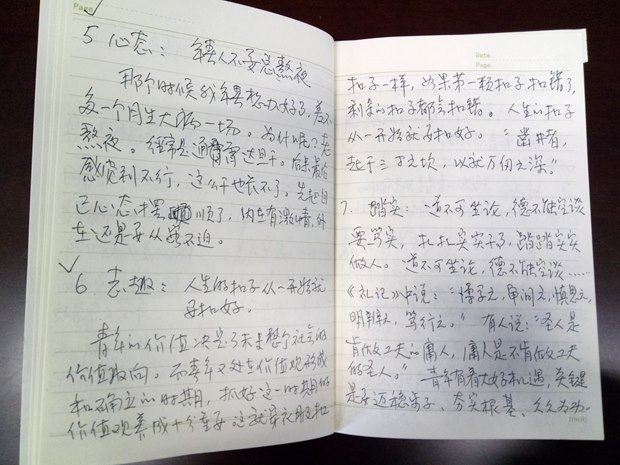 Page
5 心态：年轻人不要总熬夜
那个时候我年轻想办好事，差不
多一个月生大病一场。为什么呢？老
熬夜。经常是通宵达旦干。后来最后
感觉到不行，这么干也长不了。先把自
己心态摆顺了，内在有激情，外
在还是要从容不迫。
6 志趣：人生的扣子从一开始就
要扣好。
青年的价值决定了未来整个社会的
价值取向。而青年又处在价值观形成
和确立的时期，抓好这一时期的
价值观养成十分重要。这就穿衣服扣
Date
Page
扣子一样，如果第一颗扣子扣错了，
剩余的扣子都会扣错。人生的扣子
从一开始就要扣好。“凿井者，
起于三寸之坎，以就万仞之深。”
7. 踏实：道不可坐论，德不能空谈
要笃实，扎扎实实干事，踏踏实实
做人。道不可坐论，德不能空谈……
《礼记》中说：“博学之，审问之，慎思之，
明辨之，笃行之。”有人说：“圣人是
肯做工夫的庸人，庸人是不肯做工夫
的圣人。”青年有着大好机遇，关键
是要迈稳步子、夯实根基、久久为功。